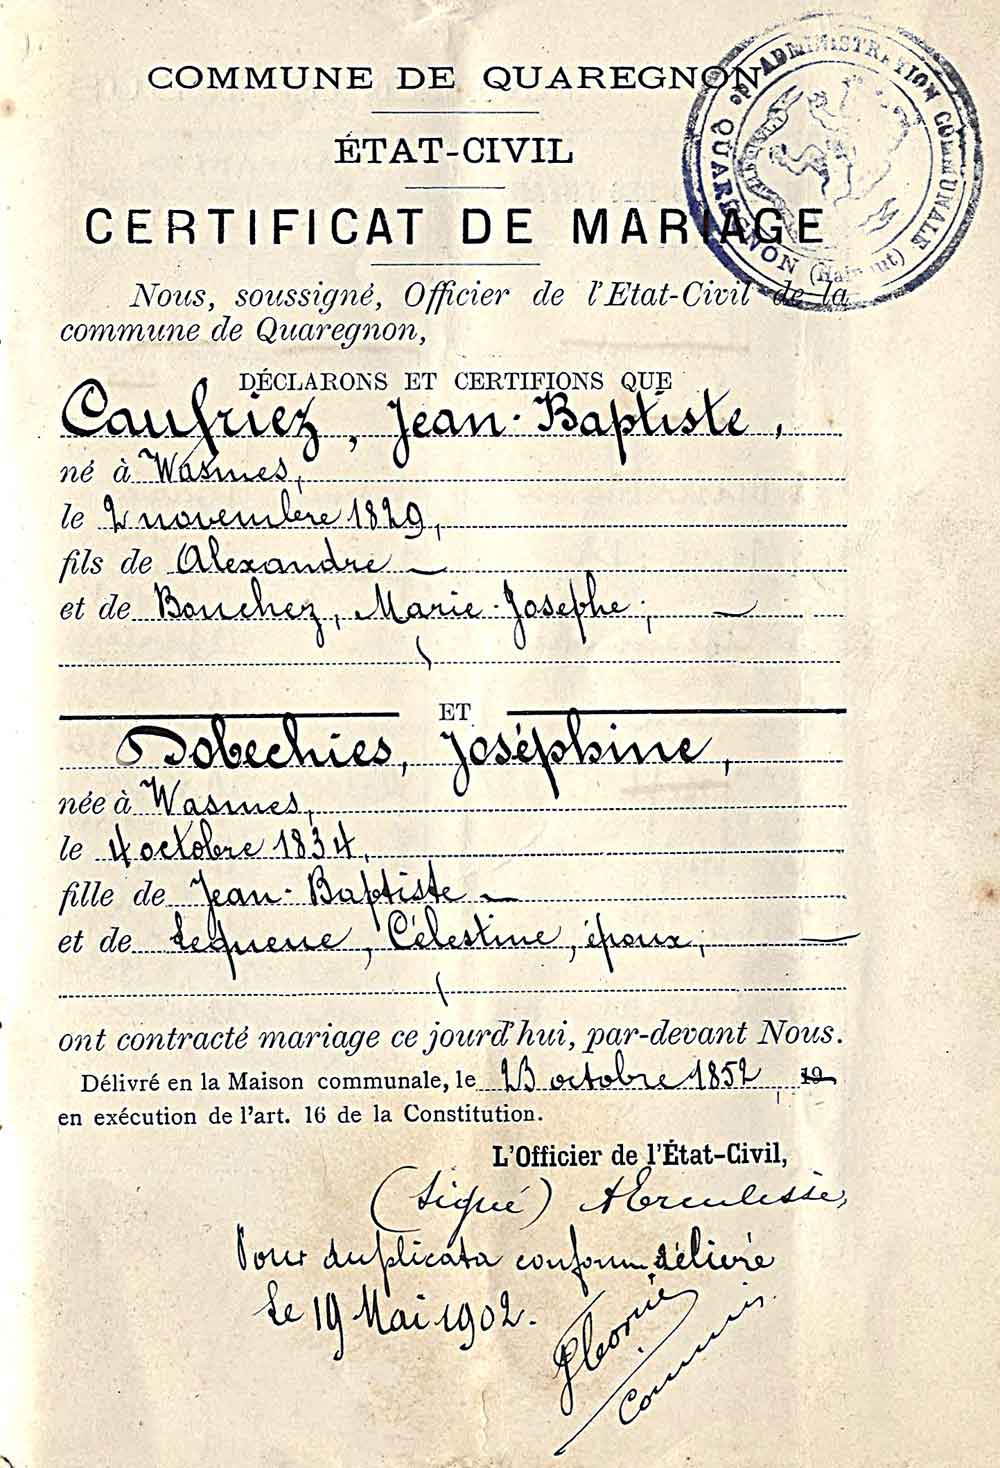 COMMUNE DE QUAREGNON
ADMINISTRATION COMMUNALE
QUAREGNON (Hainaut)
ÉTAT-CIVIL
CERTIFICAT DE MARIAGE
Nous, soussigné, Officier de l'Etat-Civil de la
commune de Quaregnon,
DÉCLARONS ET CERTIFIONS QUE
Caufriez, Jean-Baptiste,
né à Wasmes,
le 2 novembre 1829,
fils de Alexandre —
et de Bouchez, Marie-Josephe; —
ET
Dobechies, Joséphine,
née à Wasmes,
le 4 octobre 1834,
fille de Jean-Baptiste —
et de Lequeue, Célestine, époux; —
ont contracté mariage ce jourd'hui, par-devant Nous.
Délivré en la Maison communale, le 23 octobre 1852 19
en exécution de l'art. 16 de la Constitution.
L'Officier de l'État-Civil,
(Signé)
Pour duplicata conforme délivré
Le 19 Mai 1902.
Commis